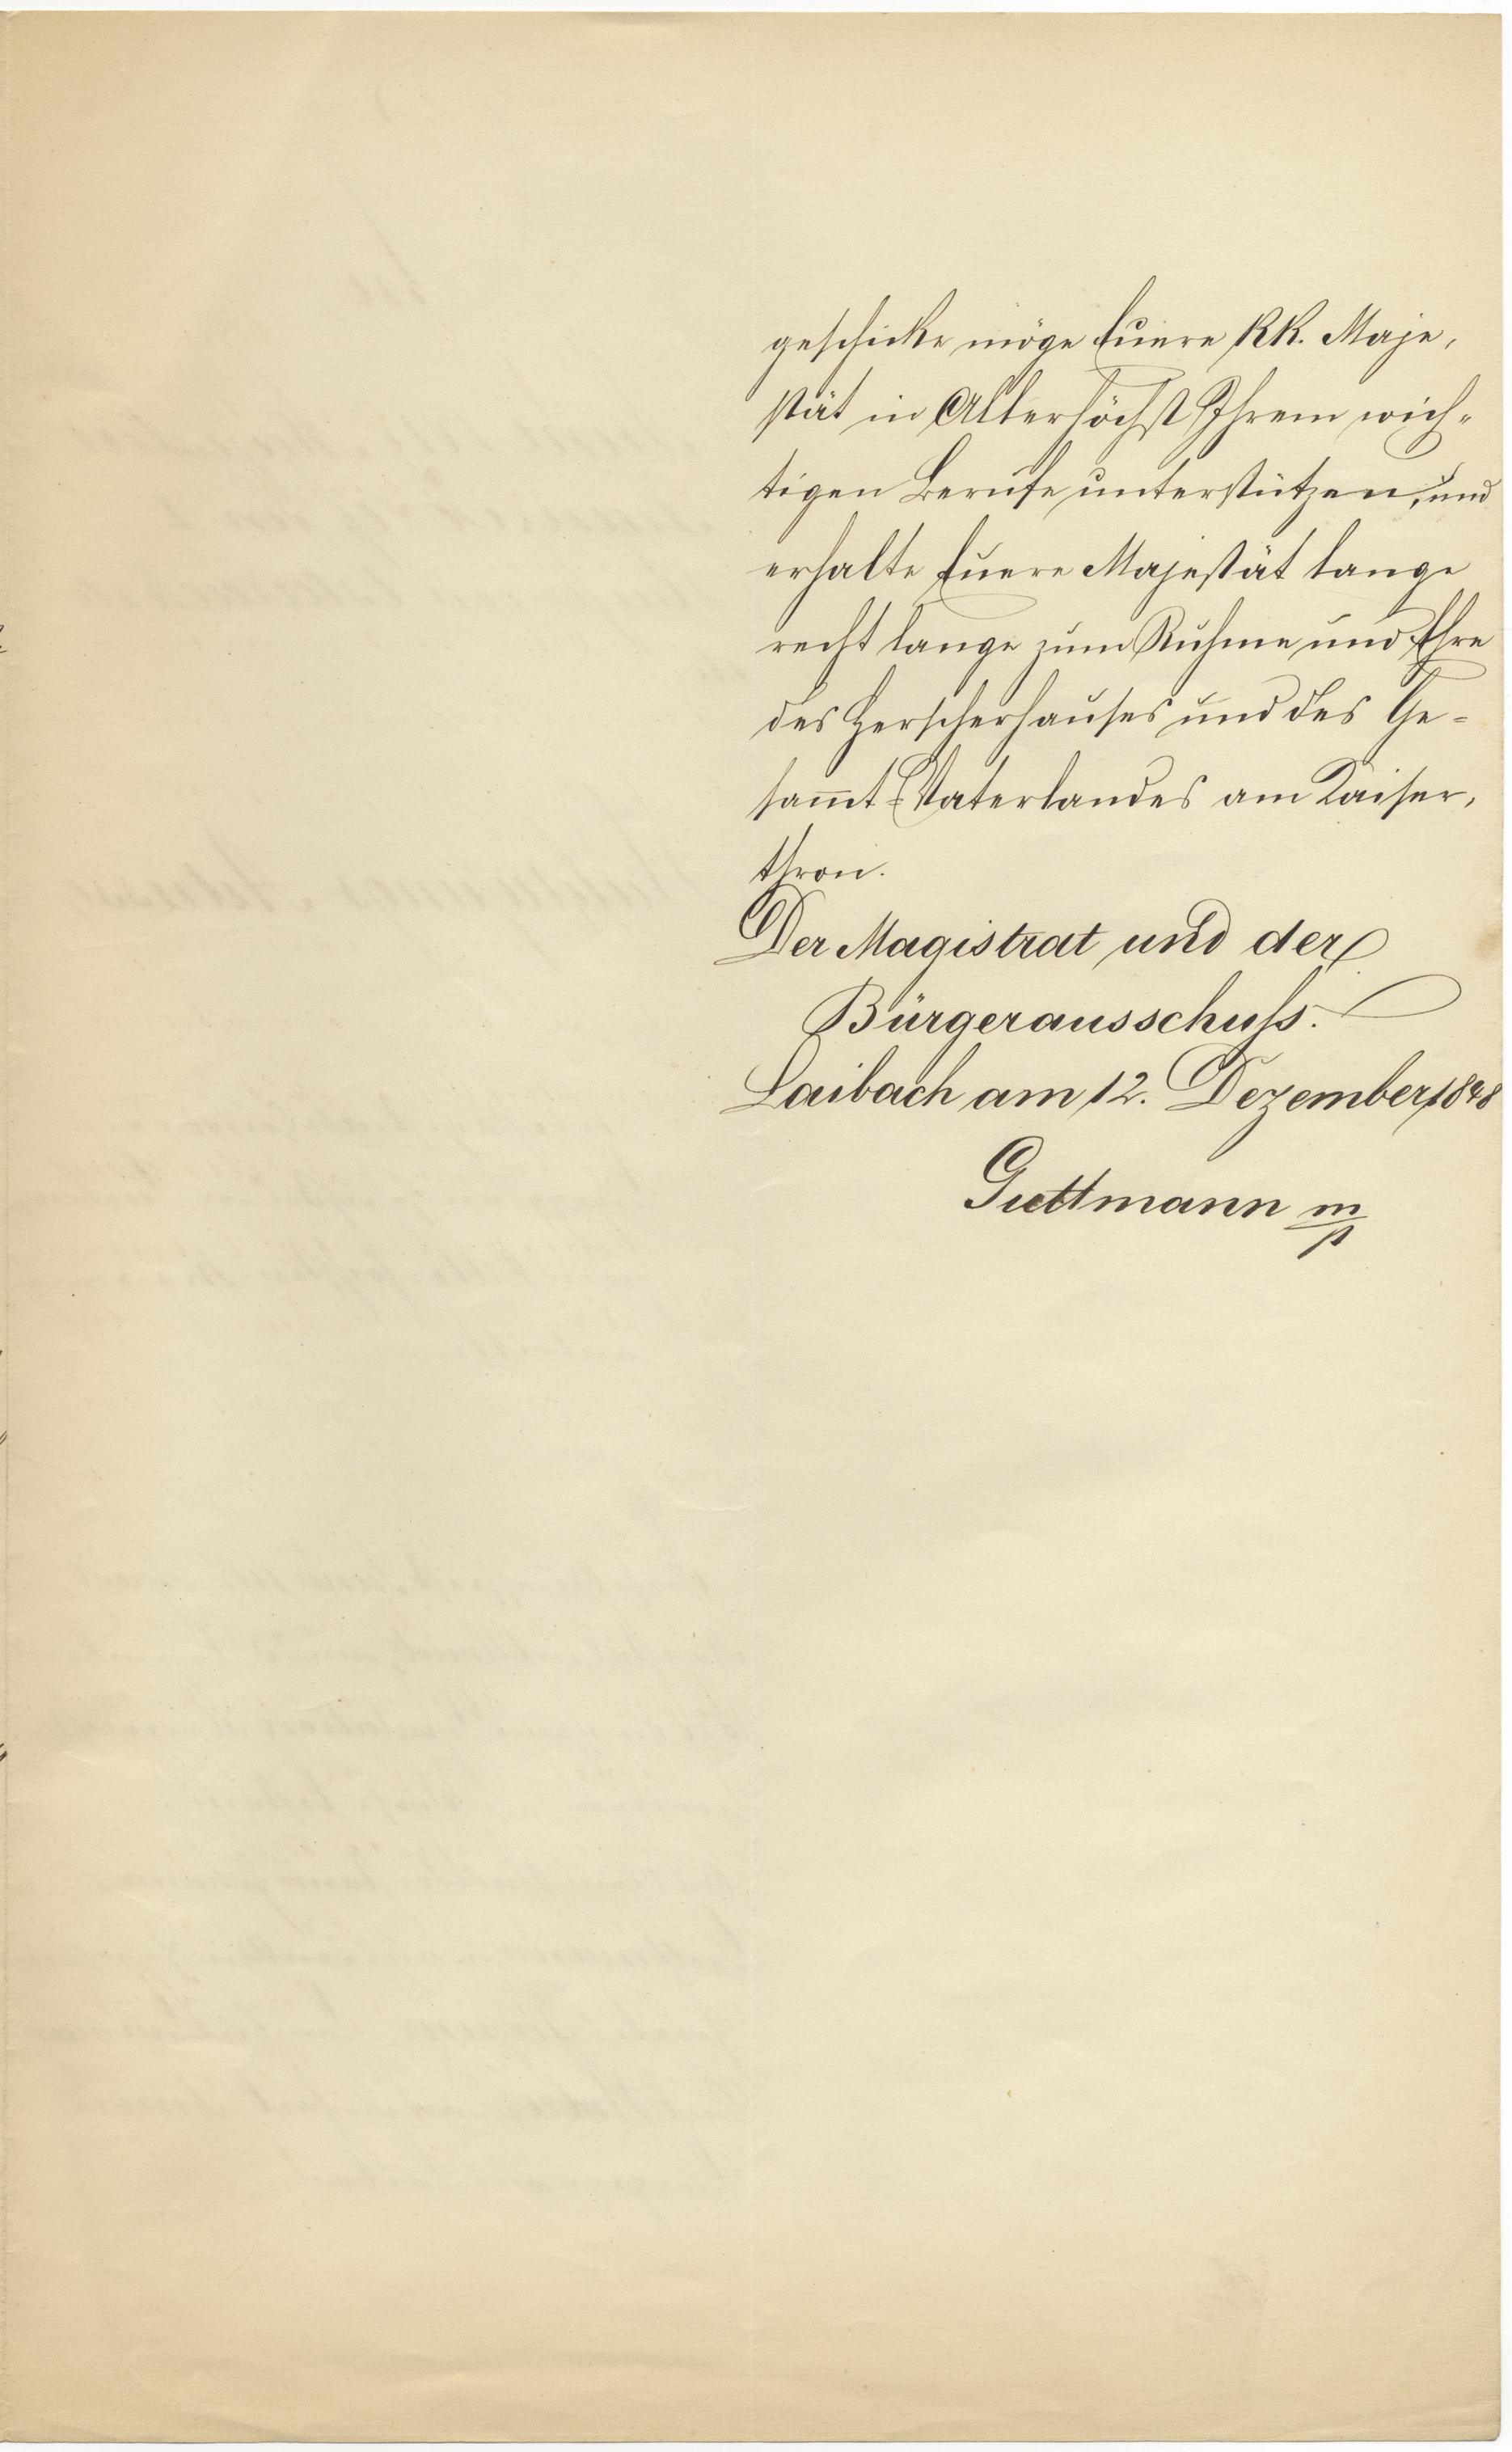 geschicke möge Euere KK. Maje,
stät in Allerhöchst Ihrem wich-
tigen Berufe unterstützen, und
erhalte Euere Majestät lange
recht lange zum Ruhme und Ehre
des Herscherhauses und des Ge-
sam̅t-Vaterlandes am Kaiser,
thron.
Der Magistrat und der
Bürgerausschuss.
Laibach am 12. Dezember 1848
Guttmann m/p